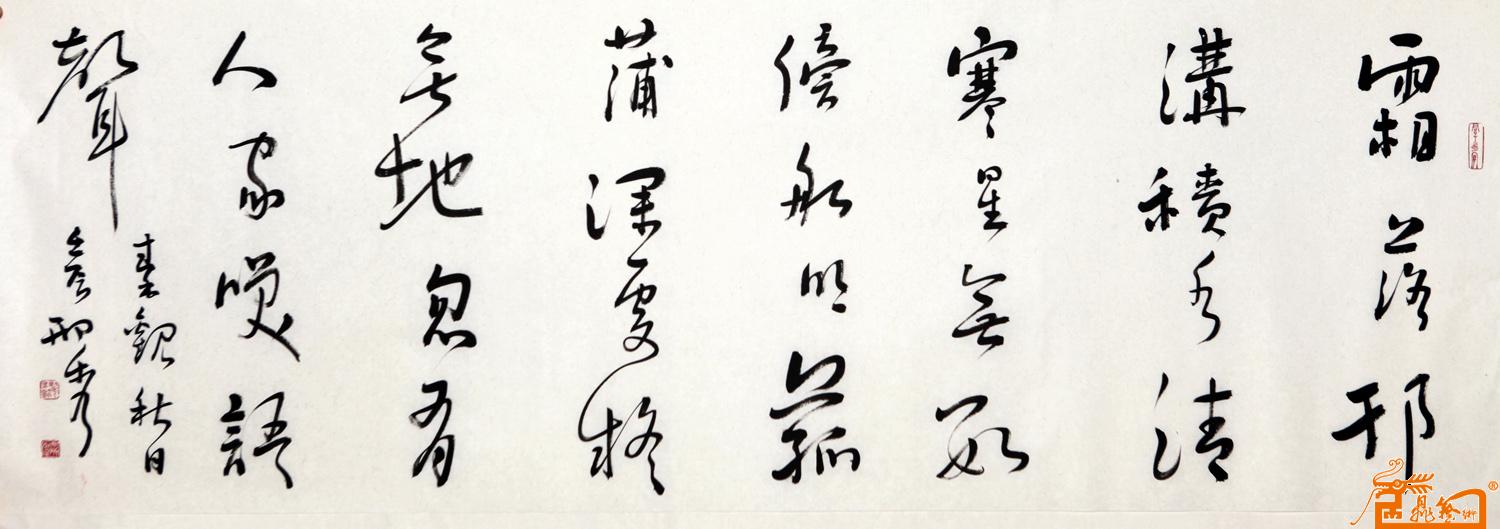 霜落邗
溝積水清
寒星無數
傍船明菰
蒲深處疑
無地忽有
人家咲語
聲
秦觀秋日
邢秀